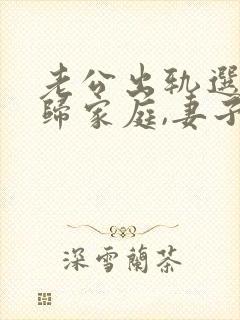 老公出轨选
歸家庭,妻子
深雪蘭茶